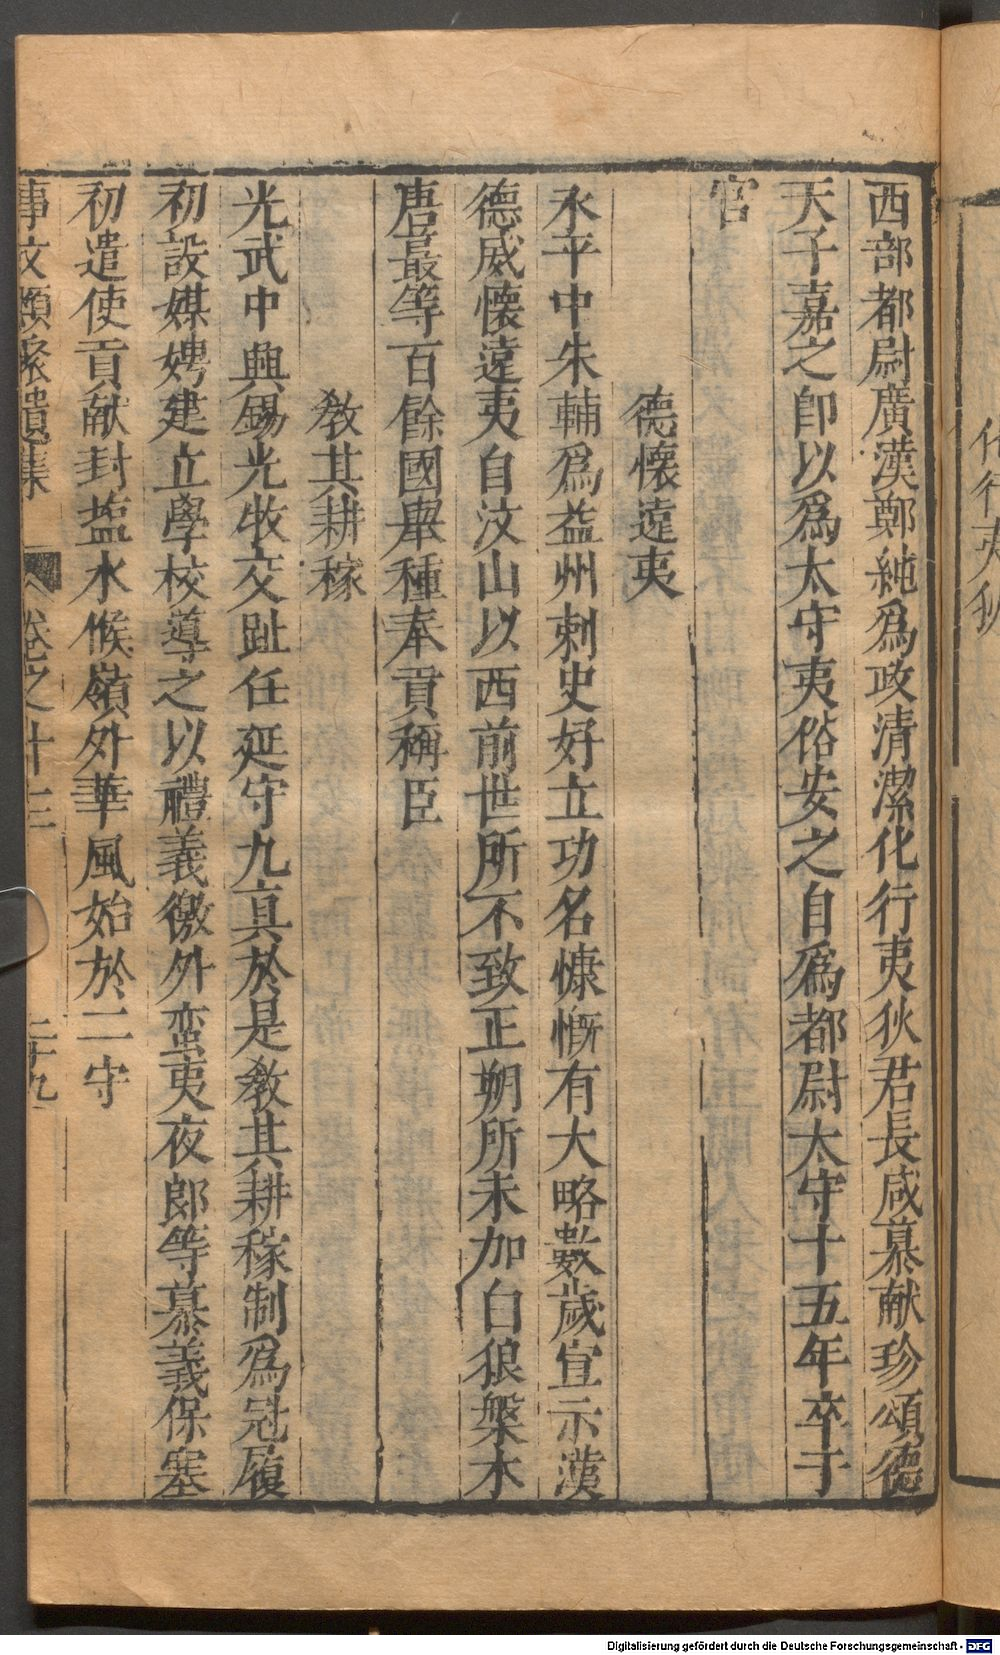 化行夷狄
西部都尉廣漢鄭純爲政清潔化行夷狄君長咸慕献珍頌德
天子嘉之卽以爲太守夷俗安之自爲都尉太守十五年卒于
官
德懷遠夷
永平中朱輔爲益州刺史好立功名慷慨有大略數歲宣示漢
德威懷遠夷自汶山以西前世所不致正朔所未加白狼槃木
唐最等百餘國舉種奉貢稱臣
敎其耕稼
光武中興錫光牧交趾任延守九真於是敎其耕稼制爲冠履
初設媒娉建立學校導之以禮義徼外蛮夷夜郎等慕義保塞
初遣使貢献封塩水候嶺外華風始於二守
事文類聚遺集 卷之十三 二十九
Digitalisierung gefördert durch die Deutsche Forschungsgemeinschaft - DFG